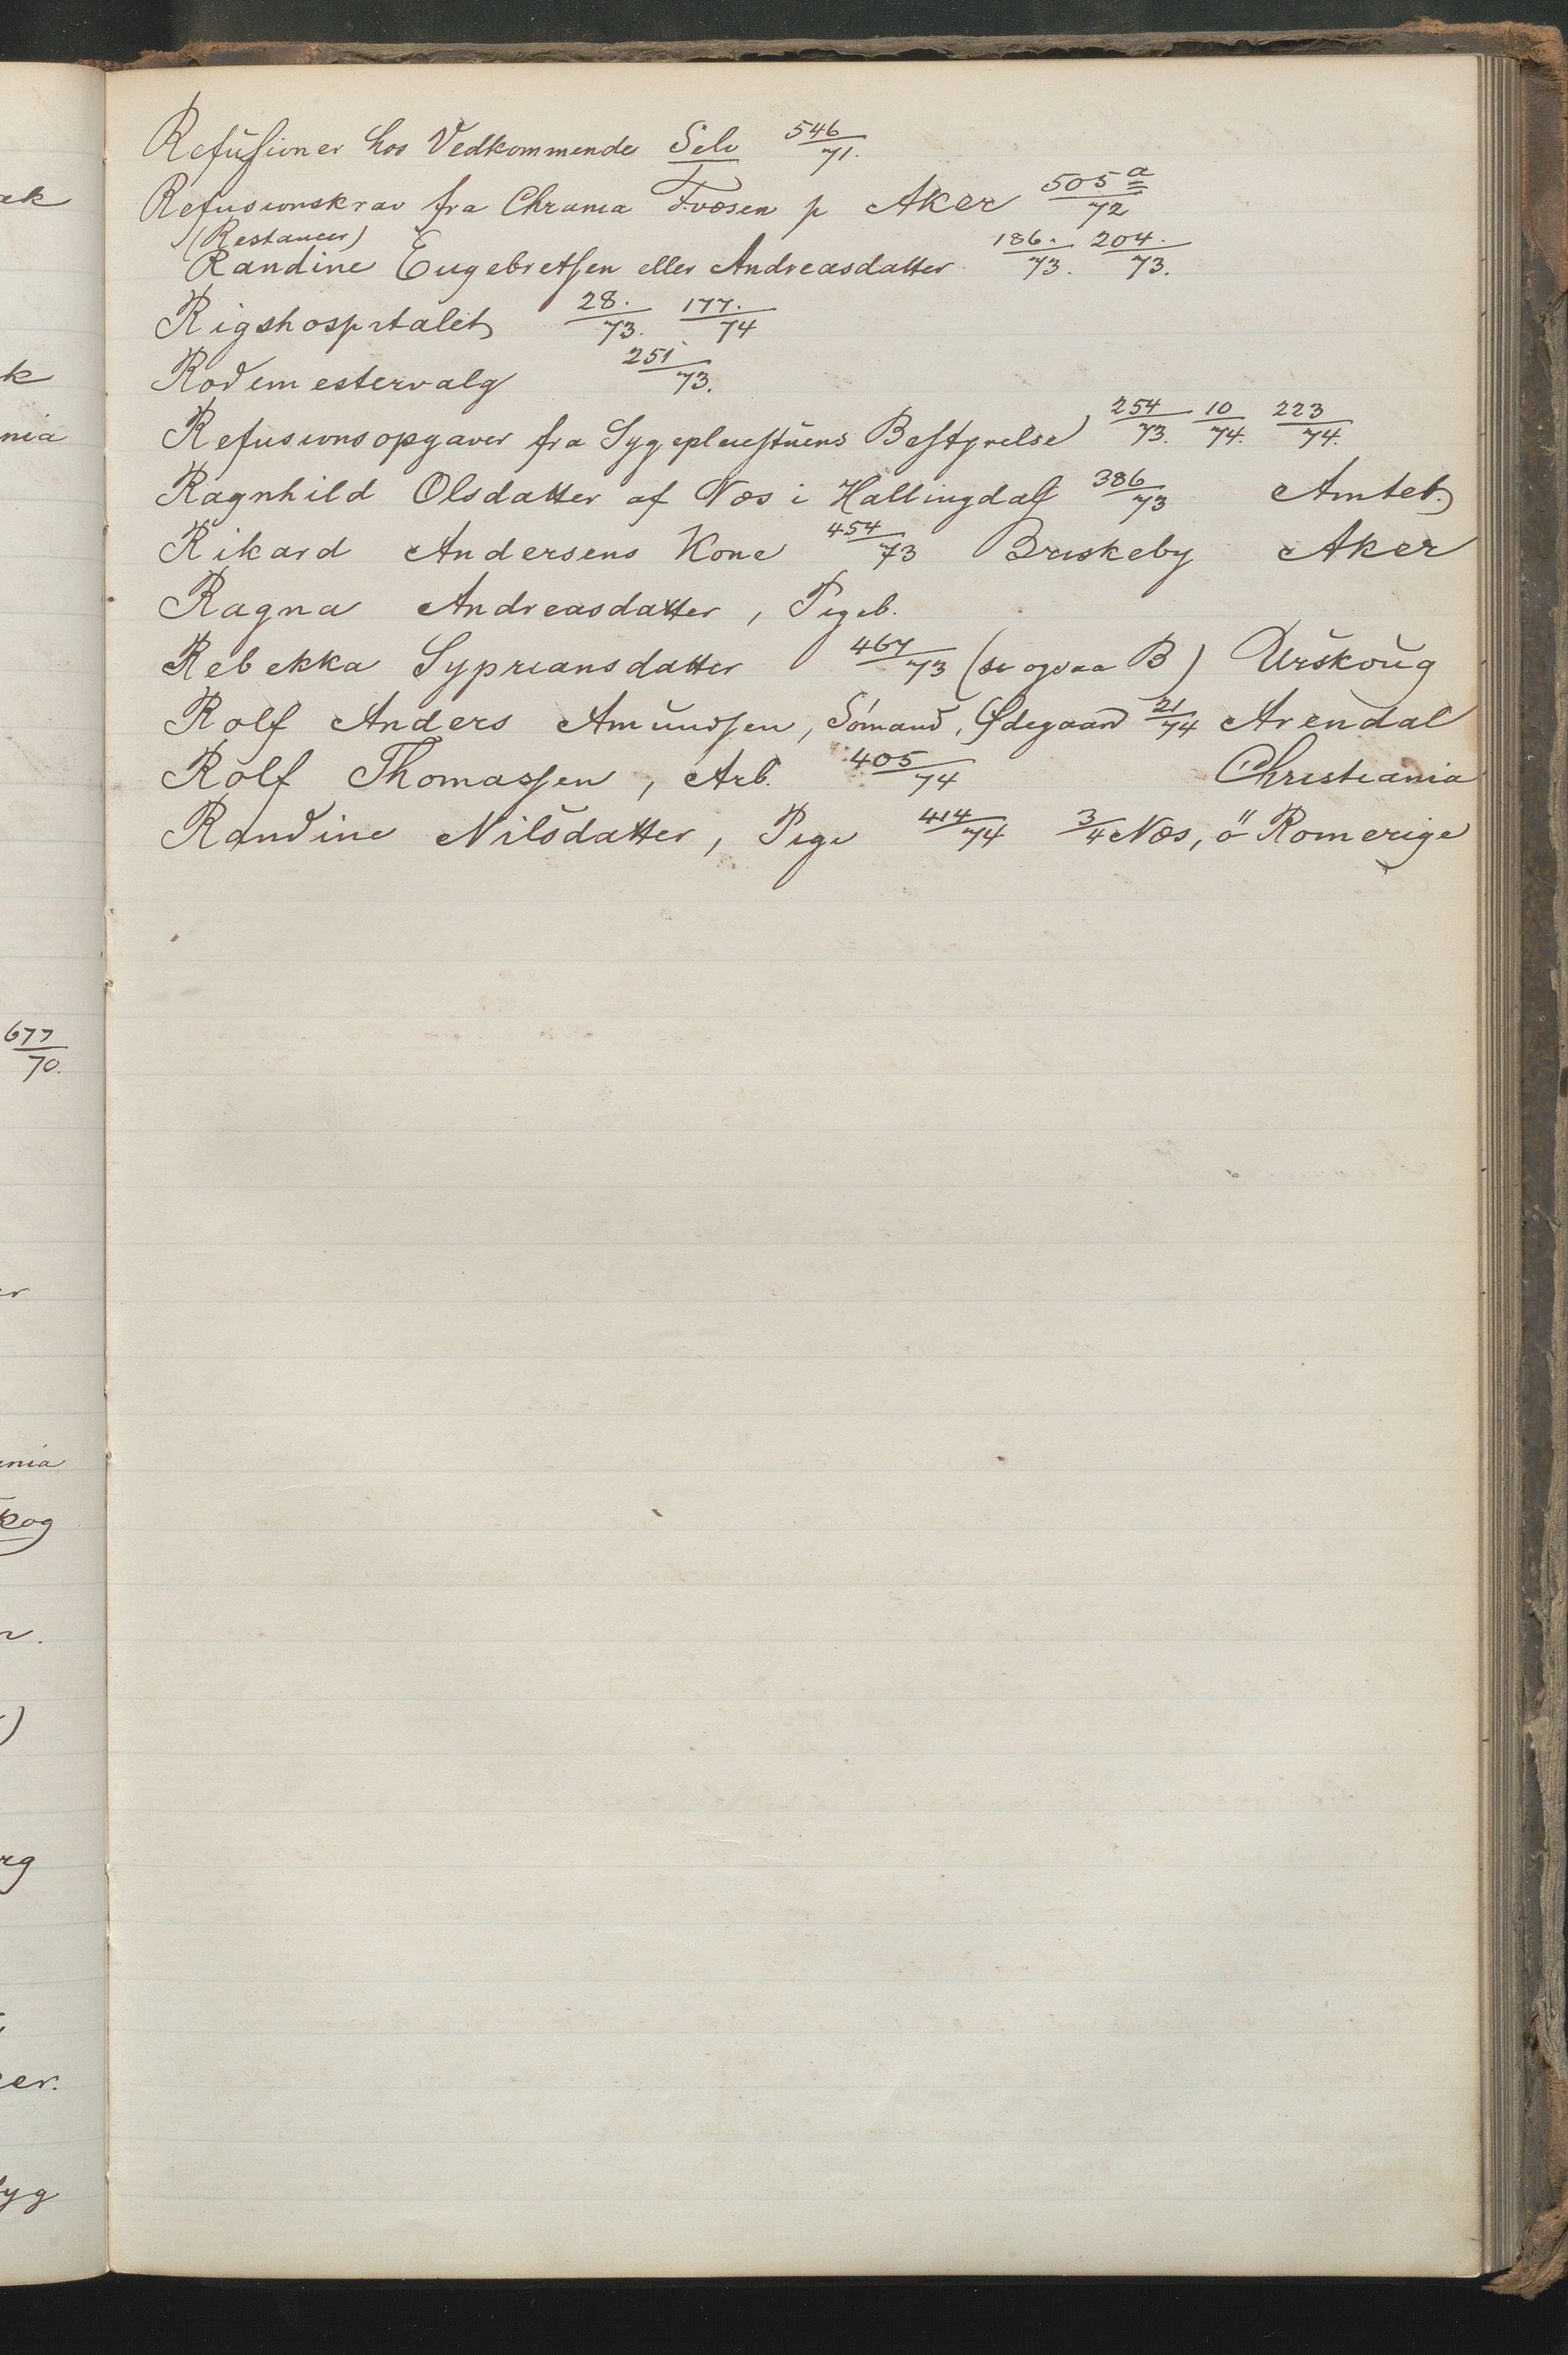 Refusioner hos Vedkommende Selv 546/71.
Refusionskrav fra Chrania Fvæsen p Aker 505a/72
(Restancer)
Randine Engebretsen eller Andreasdatter 186./73. 204./73.
Rigshospitalet 28./73. 177./74
Rodemestervalg 251/73.
Refusionsopgaver fra Sygepleiestuens Bestyrelse 254/73. 10/74. 223/74.
Ragnhild Olsdatter af Næs i Hallingdal 386/73 Amtet.
Rikard Andersens Kone 454/73 Briskeby Aker
Ragna Andreasdatter, Pigeb.
Rebekka Sypriansdatter 467/73 (se ogsaa B) Urskoug
Rolf Anders Amundsen, Sömand, Ødegaard 21/74 Arendal
Rolf Thomassen, Arb. 405/74 Christiania
Randine Nilsdatter, Pige 414/74 3/4 Næs, ö Romerige
ek
k
nia
677/70.
er
ania
kog
r.
)
rg
er.
yg